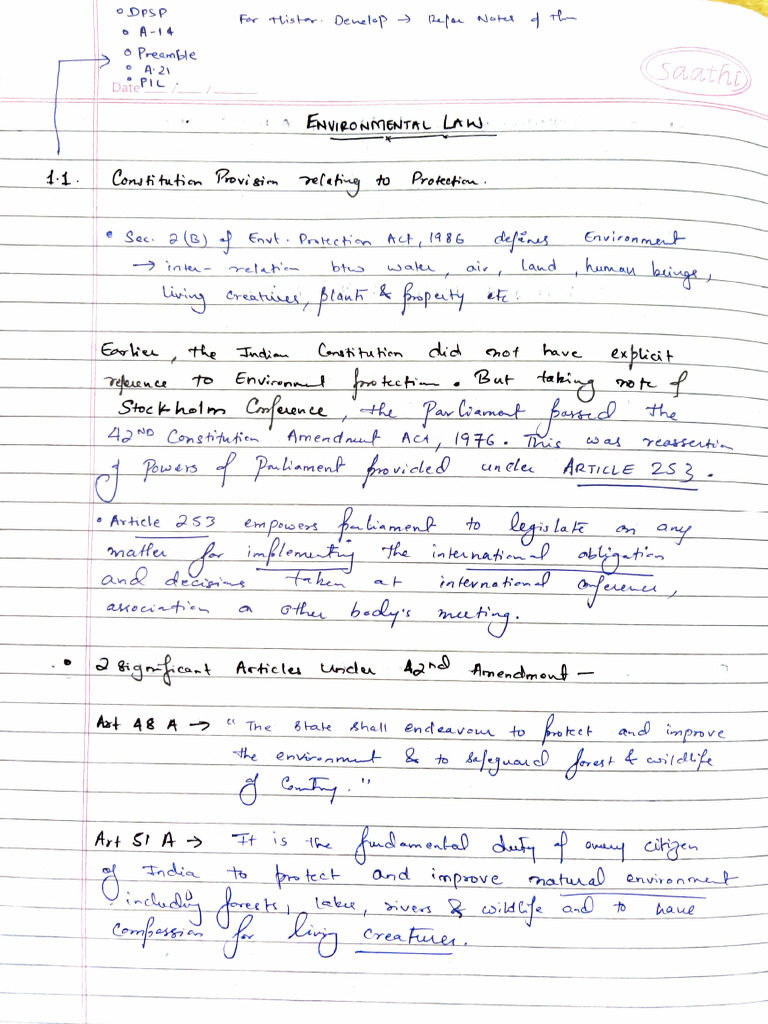 • DPSP
• A-14
• Preamble
• A.21
• PIL
For Histor. Develop → Refer Notes of
Saathi
Date / /
ENVIRONMENTAL LAW
1.1. Constitution Provision relating to Protection.
• Sec. 2(B) of Envt. Protection Act, 1986 defines Environment
→ inter-relation btw water, air, land, human beings,
living creatures, plants & property etc.
Earlier, the Indian Constitution did not have explicit
reference to Environment protection. But taking note of
Stockholm Conference, the Parliament passed the
42ND Constitution Amendment Act, 1976. This was reassertion
of Powers of Parliament provided under ARTICLE 253.
• Article 253 empowers parliament to legislate on any
matter for implementing the international obligation
and decisions taken at international conference,
association or other body's meeting.
• 2 Significant Articles under 42nd Amendment —
Art 48 A → "The state shall endeavour to protect and improve
the environment & to safeguard forest & wildlife
of Country."
Art 51 A → It is the fundamental duty of every citizen
of India to protect and improve natural environment
including forests, lakes, rivers & wildlife and to have
compassion for living creatures.